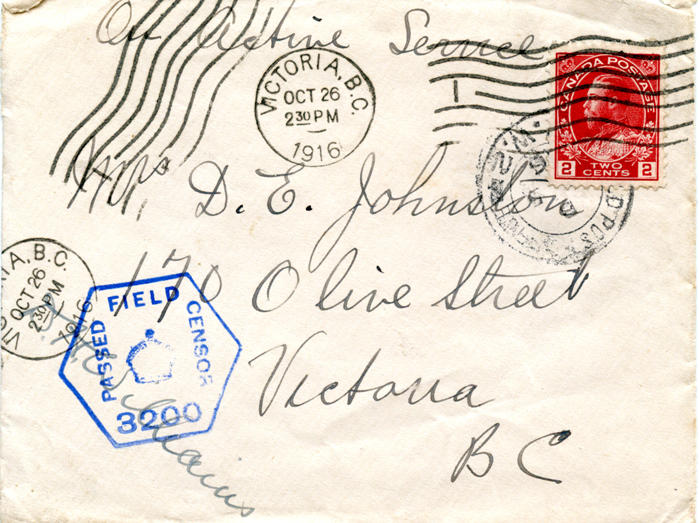 On Active Service
VICTORIA, B.C.
OCT 26
2 30 PM
1916
CANADA POSTAGE
2 TWO CENTS 2
Mrs D. E. Johnston
170 Olive Street
Victoria
BC
VICTORIA, B.C.
OCT 26
2 30 PM
1916
PASSED FIELD CENSOR
3200